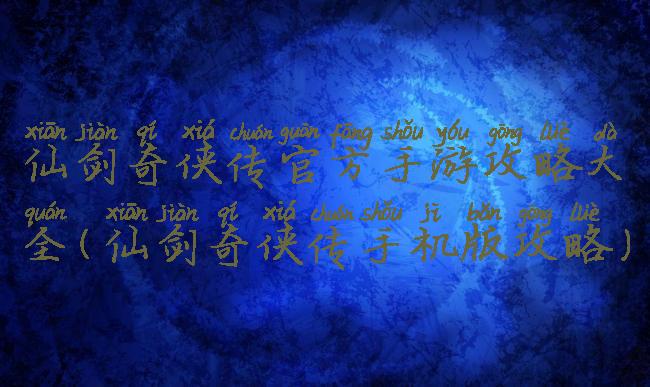 xiān jiàn qí xiá chuán guān fāng shǒu yóu gōng lüè dà
仙剑奇侠传官方手游攻略大
quán xiān jiàn qí xiá chuán shǒu jī bǎn gōng lüè
全(仙剑奇侠传手机版攻略)